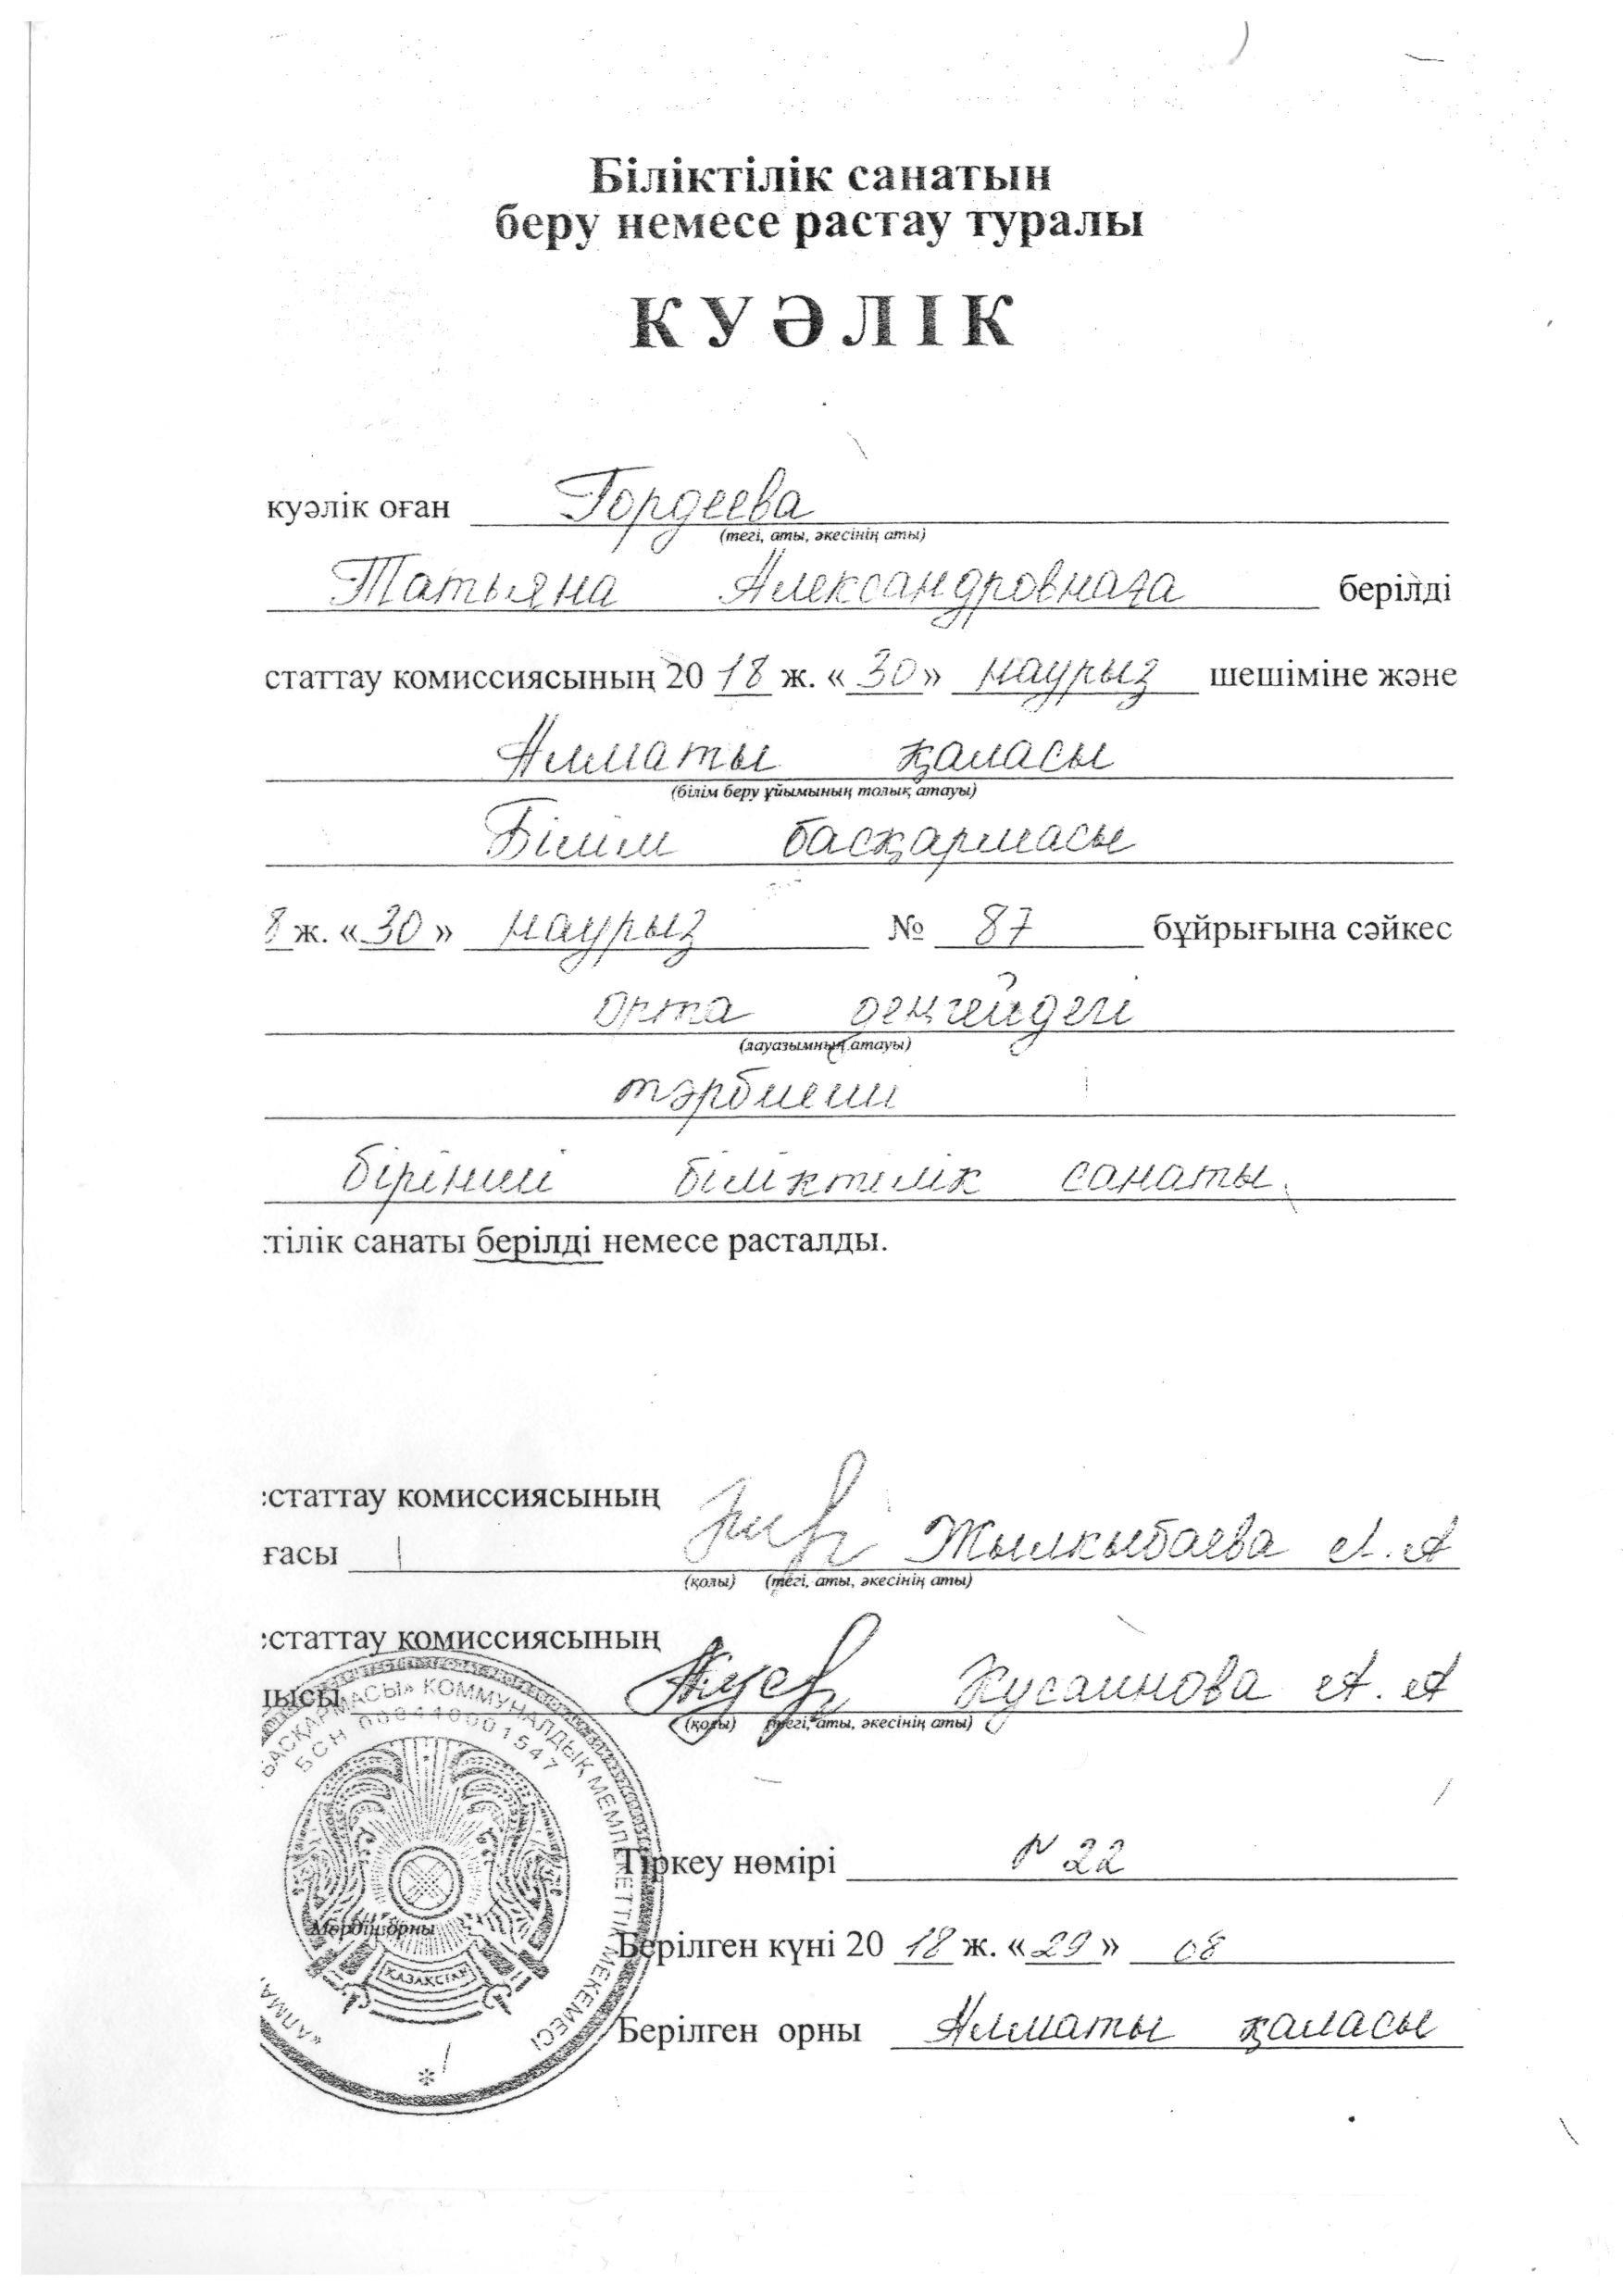 Біліктілік санатын
беру немесе растау туралы
КУӘЛІК
куәлік оған Гордеева
(тегі, аты, әкесінің аты)
Татьяна Александровнаға берілді
статтау комиссиясының 20 18 ж. «30» наурыз шешіміне және
Алматы қаласы
(білім беру ұйымының толық атауы)
Білім басқармасы
8 ж. «30» наурыз № 87 бұйрығына сәйкес
орта деңгейдегі
(лауазымның атауы)
тәрбиеші
бірінші біліктілік санаты.
тілік санаты берілді немесе расталды.
статтау комиссиясының
ғасы Жылкыбаева А.А
(қолы) (тегі, аты, әкесінің аты)
статтау комиссиясының
шысы Хусаинова А.А
(қолы) (тегі, аты, әкесінің аты)
БАСҚАРМАСЫ» КОММУНАЛДЫҚ МЕМЛЕКЕТТІК МЕКЕМЕСІ
БСН 000440001547
Тіркеу нөмірі №22
Мөрдің орны
ҚАЗАҚСТАН
Берілген күні 20 18 ж. «29» 08
«АЛМА
Берілген орны Алматы қаласы